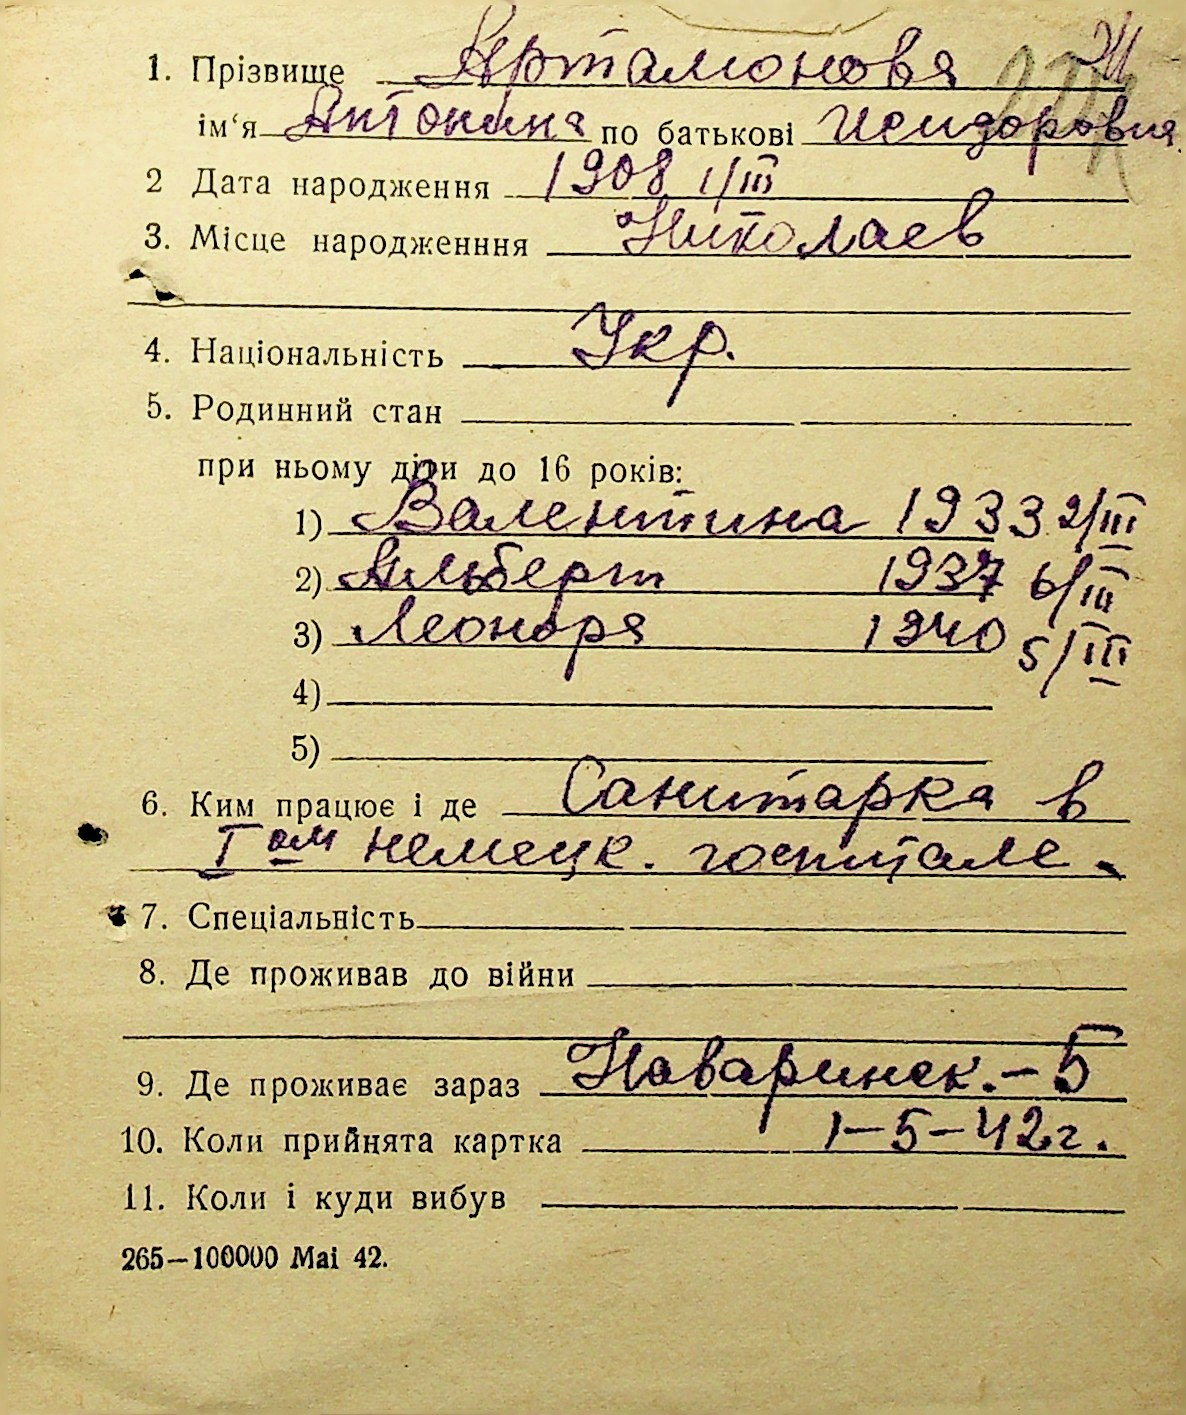 1. Прізвище Артамонова
ім‘я Антонина по батькові Исидоровна
2 Дата народження 1908 1/III
3. Місце народженння Николаев
4. Національність Укр.
5. Родинний стан
при ньому діти до 16 років:
1) Валентина 1933 2/III
2) Альберт 1937 6/III
3) Леонора 1940 5/III
4)
5)
6. Ким працює і де Санитарка в
I ом немецк. госпитале.
7. Спеціальність
8. Де проживав до війни
9. Де проживає зараз Наваринск.-5
10. Коли прийнята картка 1-5-42г.
11. Коли і куди вибув
265—100000 Mai 42.